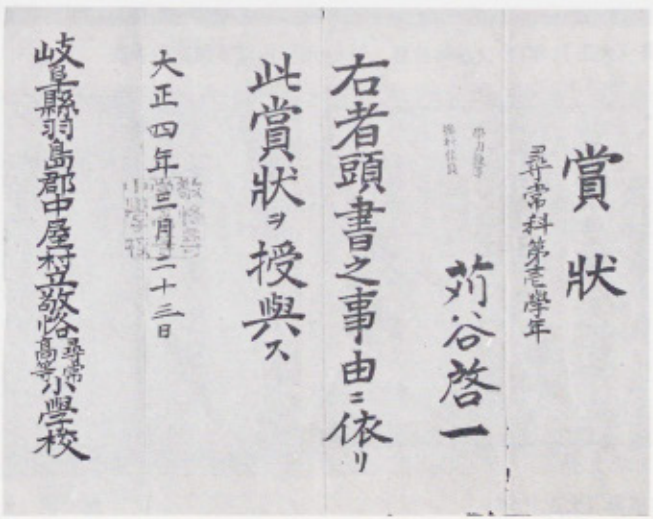 賞狀
尋常科第壱學年
苅谷啓一
右者頭書之事由ニ依リ
此賞狀ヲ授與ス
大正四年三月二十三日
岐阜縣羽島郡中屋村立敬恪尋常高等小學校